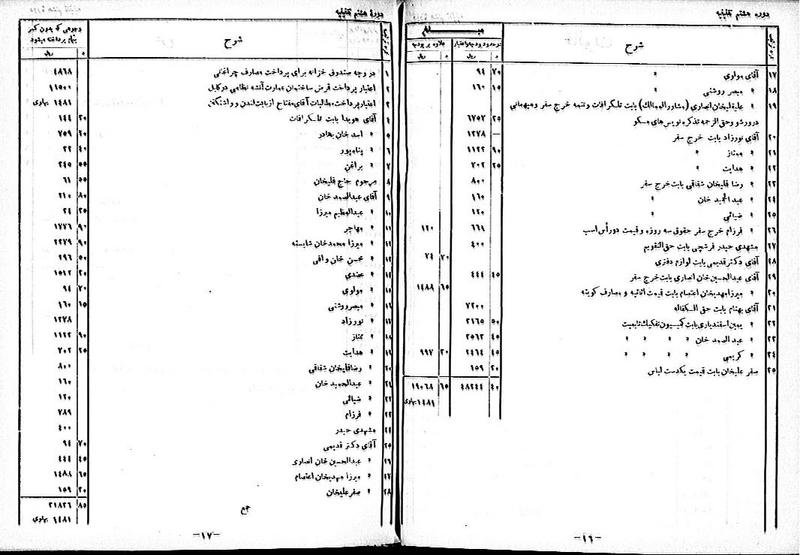 دوره هشتم تقنینیه
شرح
مبلغ
در حدود بودجه و اعتبار
علاوه بر بودجه
ریال
ریال
۱۷ آقای مولوی » ۹۴ ۷۰
۱۸ » میصر روشنی » ۱۶۰ ۱۵
۱۹ » علیقلیخان انصاری (مشاورالممالک) بابت تلگرافات و تتمه خرج سفر و میهمانی
در ورشو و حق الزحمه تذکره نویس‌های مسکو ۱۷۵۲ ۲۵
۲۰ آقای نورزاد بابت خرج سفر ۱۲۷۸ —
۲۱ » ممتاز » ۱۱۲۲ ۹۰
۲۲ » هدایت » ۷۰۲ ۲۵
۲۳ » رضا قلیخان شقاقی بابت خرج سفر ۸۰۰
۲۴ » عبدالحمید خان » ۱۶۰
۲۵ » ضیائی » ۱۲۰
۲۶ » فرزام خرج سفر حقوق سه روزه و قیمت دو رأس اسب ۶۶۸ ۱۲۰
۲۷ مشهدی حیدر فرشچی بابت حق التقویم ۴۰۰
۲۸ آقای دکتر قدیمی بابت لوازم دفتری ۷۴ ۲۰
۲۹ آقای عبدالحسین خان انصاری بابت خرج سفر ۴۴۴ ۴۵
۳۰ » میرزا مهدیخان اعتصام بابت قیمت اثاثیه و مصارف کویته ۱۴۸۸ ۶۵
۳۱ آقای بهنام بابت حق الکفاله ۷۲۰۰
۳۲ » یمین اسفندیاری بابت کمیسیون تفکیک تابعیت ۲۱۶۵ ۵۰
۳۳ » عبدالصمد خان » » » » ۲۵۶۲ ۴۵
۳۴ » کریمی » » » » ۲۴۶۴ ۴۵ ۹۹۷ ۲۰
۳۵ صفر علیخان بابت قیمت یکدست لباس ۱۵۹ ۲۰
۴۸۲۴۴ ۴۰ ۱۹۰۶۸ ۶۵
۱۴۸۱ پهلوی
—۱۶—
دوره هشتم تقنینیه
شرح
وجوهی که بدون کسر
بنیان پرداخته میشود
ریال
۱ در وجه صندوق خزانه برای پرداخت مصارف چراغنی ۴۸۶۸
۲ اعتبار پرداخت قرض ساختمان عمارت آتشه نظامی در کابل ۱۱۵۰۰
۳ اعتبار پرداخت مطالبات آقای مفتاح از بابت لندن و واشنگتن ۱۴۸۱ پهلوی
۴ آقای هویدا بابت تلگرافات ۱۴۴ ۲۰
۵ » اسد خان بهادر ۷۵۹ ۲۰
۶ » پناه‌پور ۲۲ ۴۰
۷ » براغن ۲۴۵ ۵۵
۸ مرحوم جنح قلیخان ۶۱ ۵۵
۹ آقای عبدالصمد خان ۲۱۰ ۸۰
۱۰ » عبدالعظیم میرزا ۲۴ ۲۵
۱۱ » مهاجر ۱۷۷۶ ۹۰
۱۲ » میرزا محمد خان شایسته ۲۲۷۹ ۹۰
۱۳ » محسن خان وافی ۲۹۶ ۵۰
۱۴ » مجتدی ۱۵۱۲ ۲۰
۱۵ » مولوی ۹۴ ۷۰
۱۶ » میصر روشنی ۱۶۰ ۱۵
۱۷ » نورزاد ۱۲۷۸
۱۸ » ممتاز ۱۱۲۲ ۹۰
۱۹ » هدایت ۷۰۲ ۲۵
۲۰ » رضا قلیخان شقاقی ۸۰۰
۲۱ » عبدالحمید خان ۱۶۰
۲۲ » ضیائی ۱۲۰
۲۳ » فرزام ۷۸۹
۲۴ مشهدی حیدر ۴۰۰
۲۵ آقای دکتر قدیمی ۹۴ ۷۰
۲۶ » عبدالحسین خان انصاری ۴۴۴ ۴۵
۲۷ » میرزا مهدیخان اعتصام ۱۴۸۸ ۶۵
۲۸ » صفر علیخان ۱۵۹ ۲۰
جمع ۳۱۸۲۶ ۸۵
۱۴۸۱ پهلوی
—۱۷—